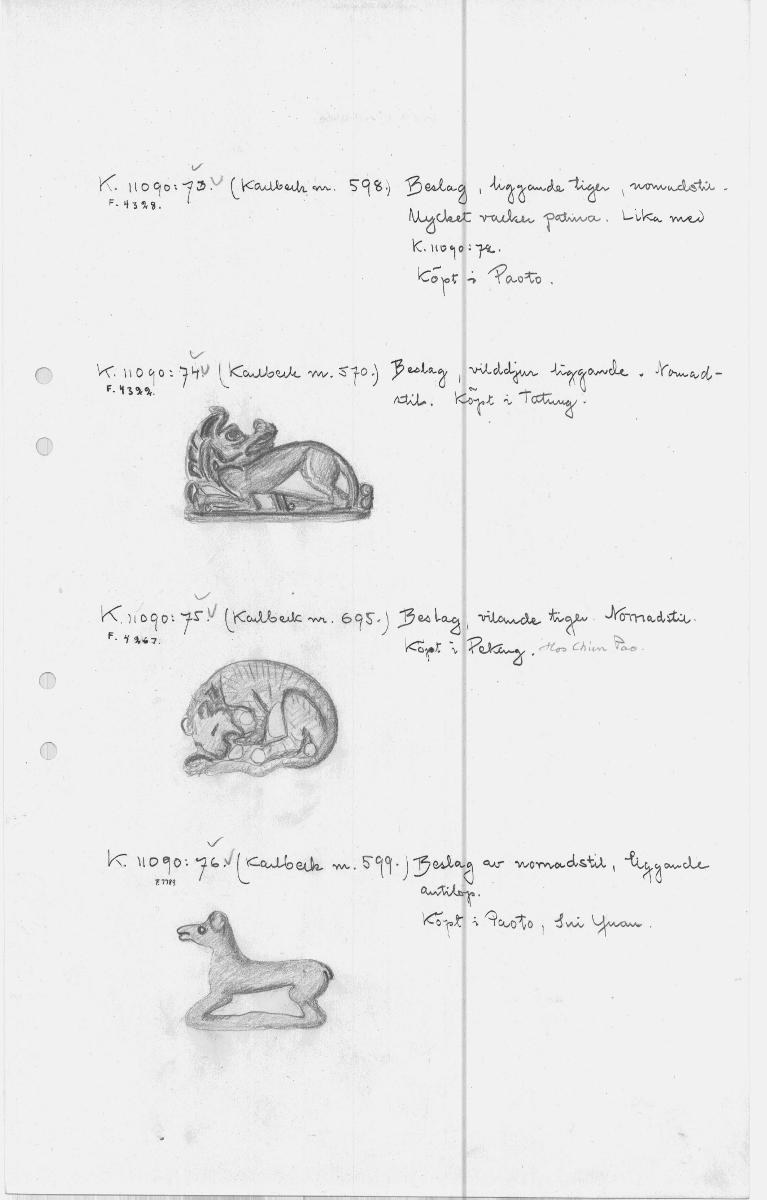 K. 11090:73. (Karlbeck nr. 598.) Beslag, liggande tiger, nomadstil.
F. 4328.
Mycket vacker patina. Lika med
K. 11090:72.
Köpt i Paoto.
K. 11090:74 (Karlbeck nr. 570.) Beslag, vilddjur liggande. Nomad-
F. 4322.
stil. Köpt i Tatung.
K. 11090:75. (Karlbeck nr. 695.) Beslag, vilande tiger. Nomadstil.
F. 4267.
Köpt i Peking. Hos Chien Pao.
K. 11090:76. (Karlbeck nr. 599.) Beslag av nomadstil, liggande
antilop.
Köpt i Paoto, Sui Yuan.